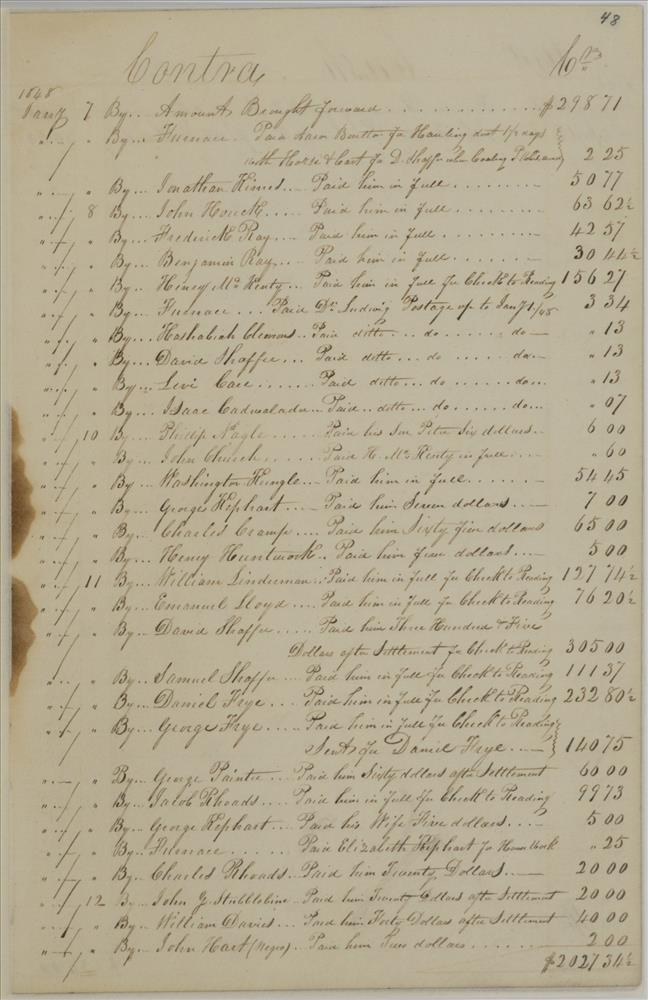 48
Contra Crs
1848
Jany 7 By.. Amount Brought forward . . . . . . . . . . $298 71
" " By.. Furnace. Paid Aaron for Hauling dirt 1½ days
with Horse & Cart for D. Shaffer when Coaling 2 25
" " By.. Jonathan Himes... Paid him in full . . . . . . . . 50 77
" 8 By.. John Houck..... Paid him in full . . . . . . . . 63 62½
" " By.. Frederick Ray.... Paid him in full . . . . . . . . 42 57
" " By.. Benjamin Ray.... Paid him in full . . . . . . . 30 44½
" " By.. Henry Mc Kenty.. Paid him in full for Check to Reading 156 27
" " By.. Furnace.... Paid Dr. Ludwig Postage up to Jany 1/48 3 34
" " By... Hashabiah Clemens.. Paid ditto... do...... do " 13
" " By.. David Shaffer... Paid ditto... do..... do " 13
" " By... Levi Care....... Paid ditto... do...... do... " 13
" " By.. Isaac Cadwalader.. Paid.. ditto... do...... do... " 07
" 10 By.. Philip Nagle...... Paid his Son Peter Six dollars.. 6 00
" " By... John Church..... Paid H. Mc Kenty in full... " 60
" " By.. Washington Hungle... Paid him in full....... 54 45
" " By.. George Hiphart.... Paid him Seven dollars... 7 00
" " By.. Charles Cramp.... Paid him Sixty five dollars 65 00
" " By... Henry Huntwork.. Paid him five dollars.... 5 00
" 11 By... William Linderman.. Paid him in full for Check to Reading 127 74½
" " By.. Emanuel Lloyd.... Paid him in full for Check to Reading 76 20½
" " By... David Shaffer..... Paid him Three Hundred & Five
Dollars after Settlement for Check to Reading 305 00
" " By.. Samuel Shaffer... Paid him in full for Check to Reading 111 37
" " By.. Daniel Frye.... Paid him in full for Check to Reading 232 80½
" " By.. George Frye.... Paid him in full for Check to Reading
Sent for Daniel Frye... 140 75
" " By... George Painter... Paid him Sixty dollars after Settlement 60 00
" " By.. Jacob Rhoads.... Paid him in full for Check to Reading 99 73
" " By.. George Hiphart.... Paid his Wife Five dollars.... 5 00
" " By.. Furnace....... Paid Elizabeth Hiphart for House Work " 25
" " By.. Charles Rhoads.. Paid him Twenty Dollars.... 20 00
" 12 By.. John G Stubblebine.. Paid him Twenty Dollars after Settlement 20 00
" " By... William Davies... Paid him Forty Dollars after Settlement 40 00
" " By.. John Hart (Negro).. Paid him Two dollars....... 2 00
$2027 34½